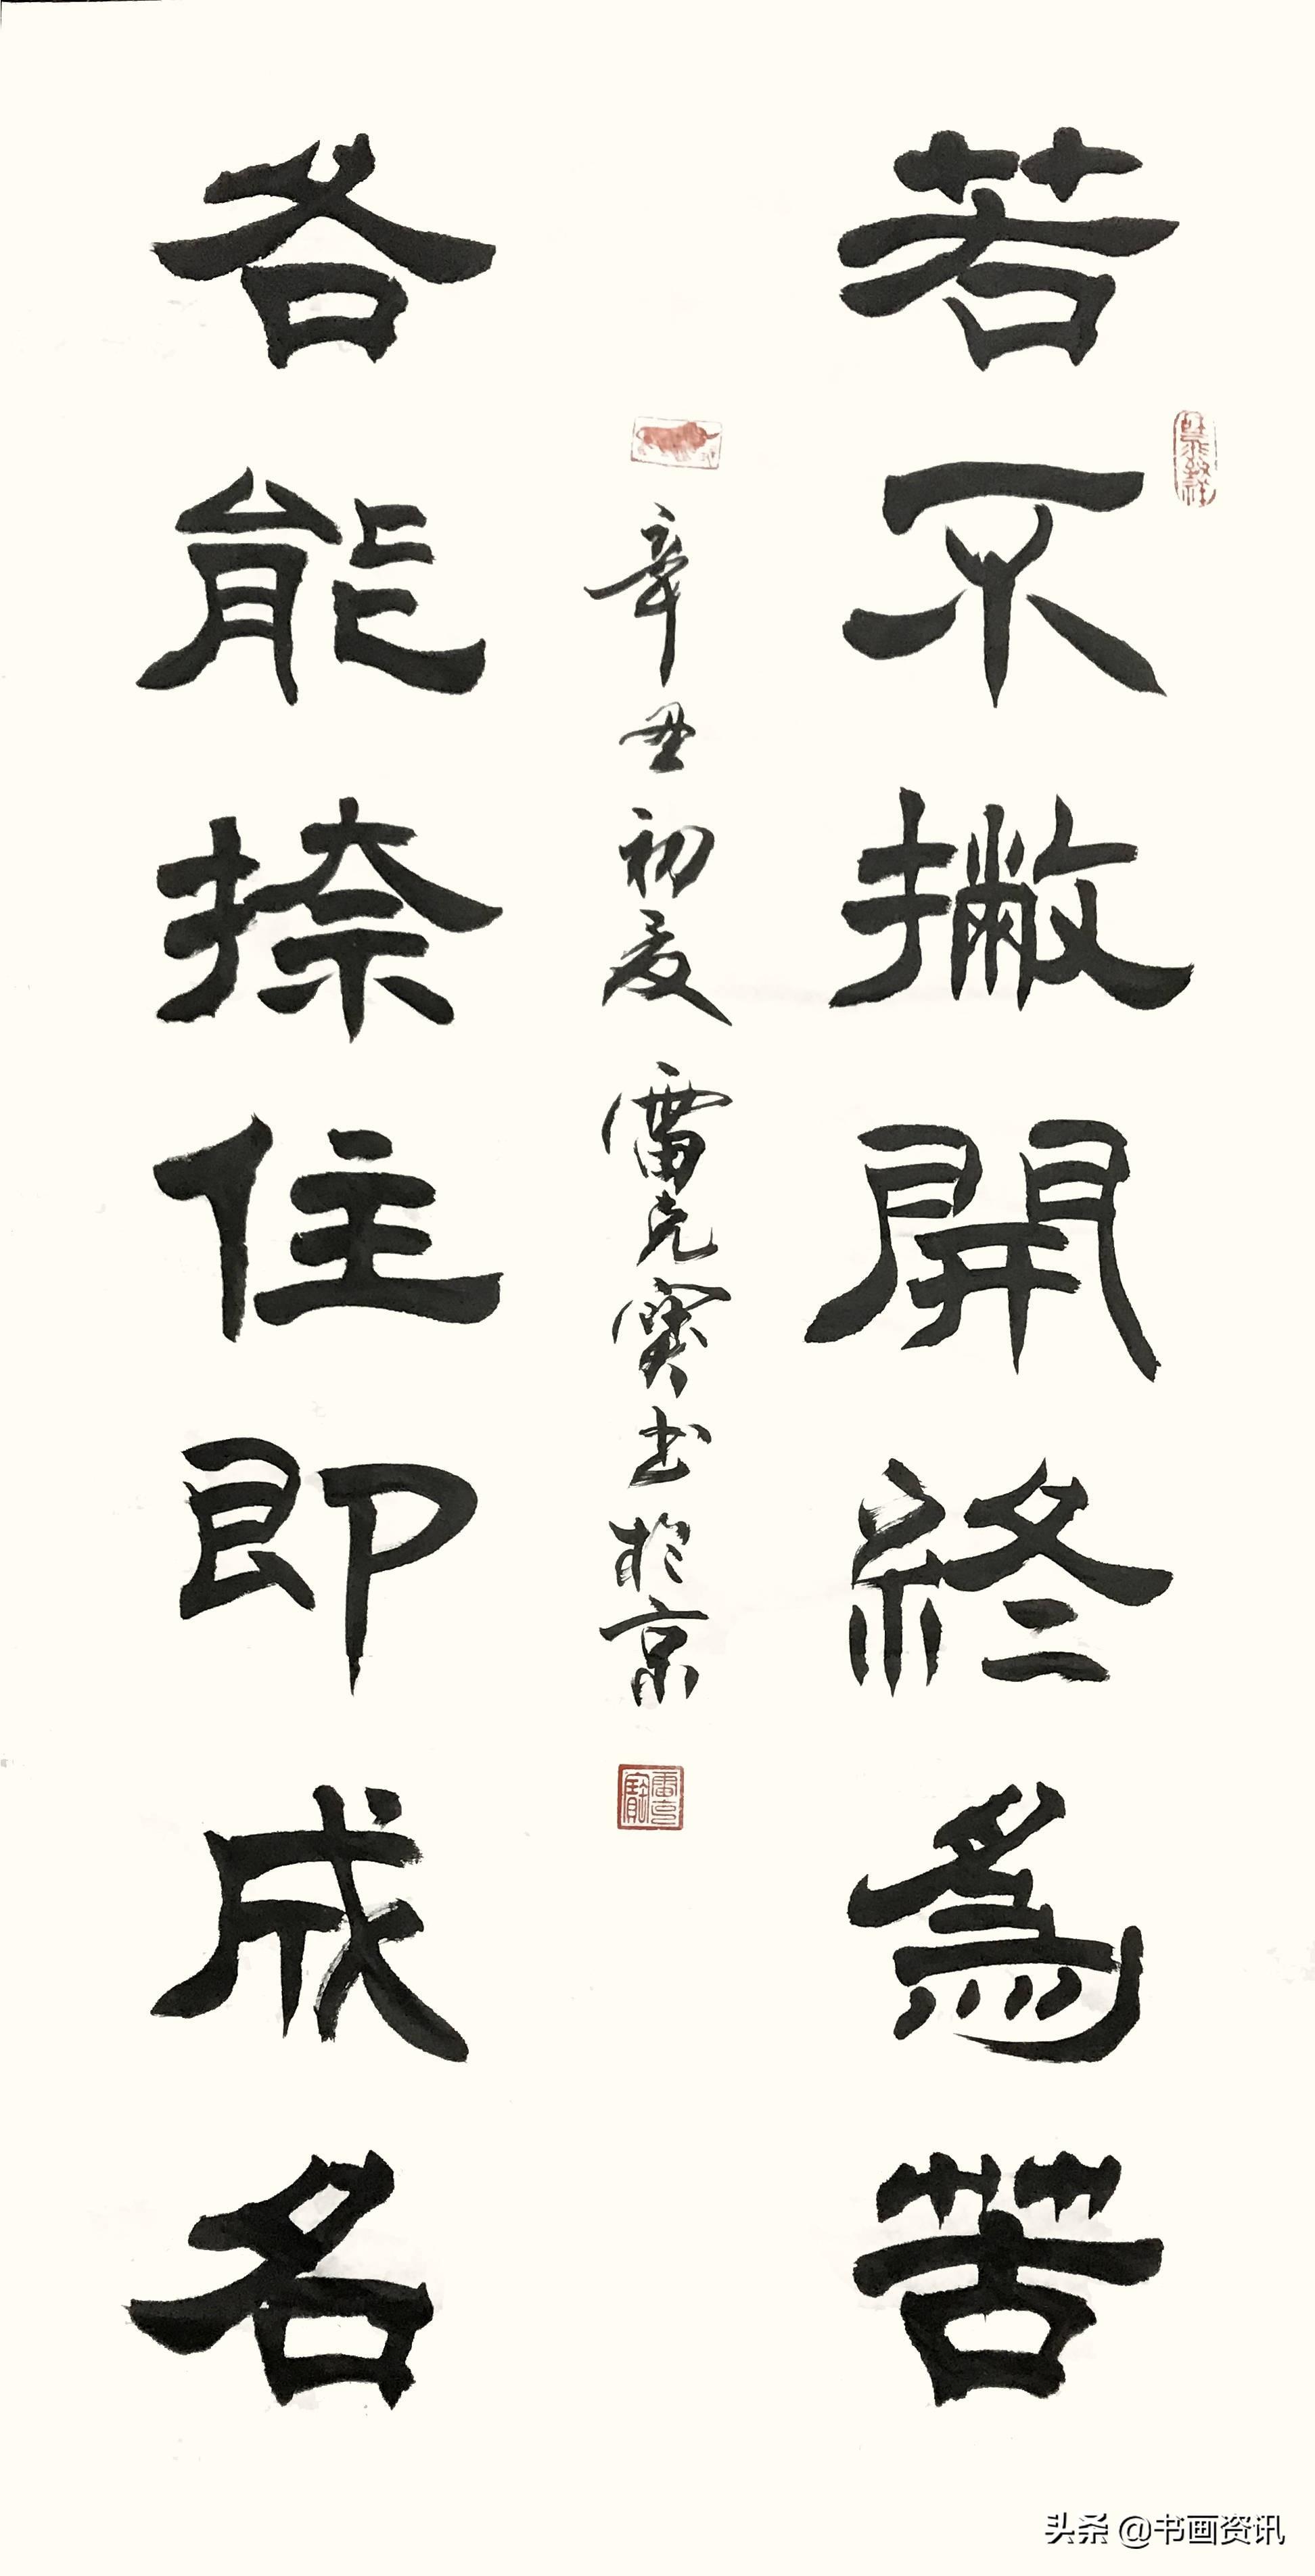 若不撇開終為苦
各能捺住即成名
辛丑初夏雷克寶书於京
雷克寶
头条 @书画资讯